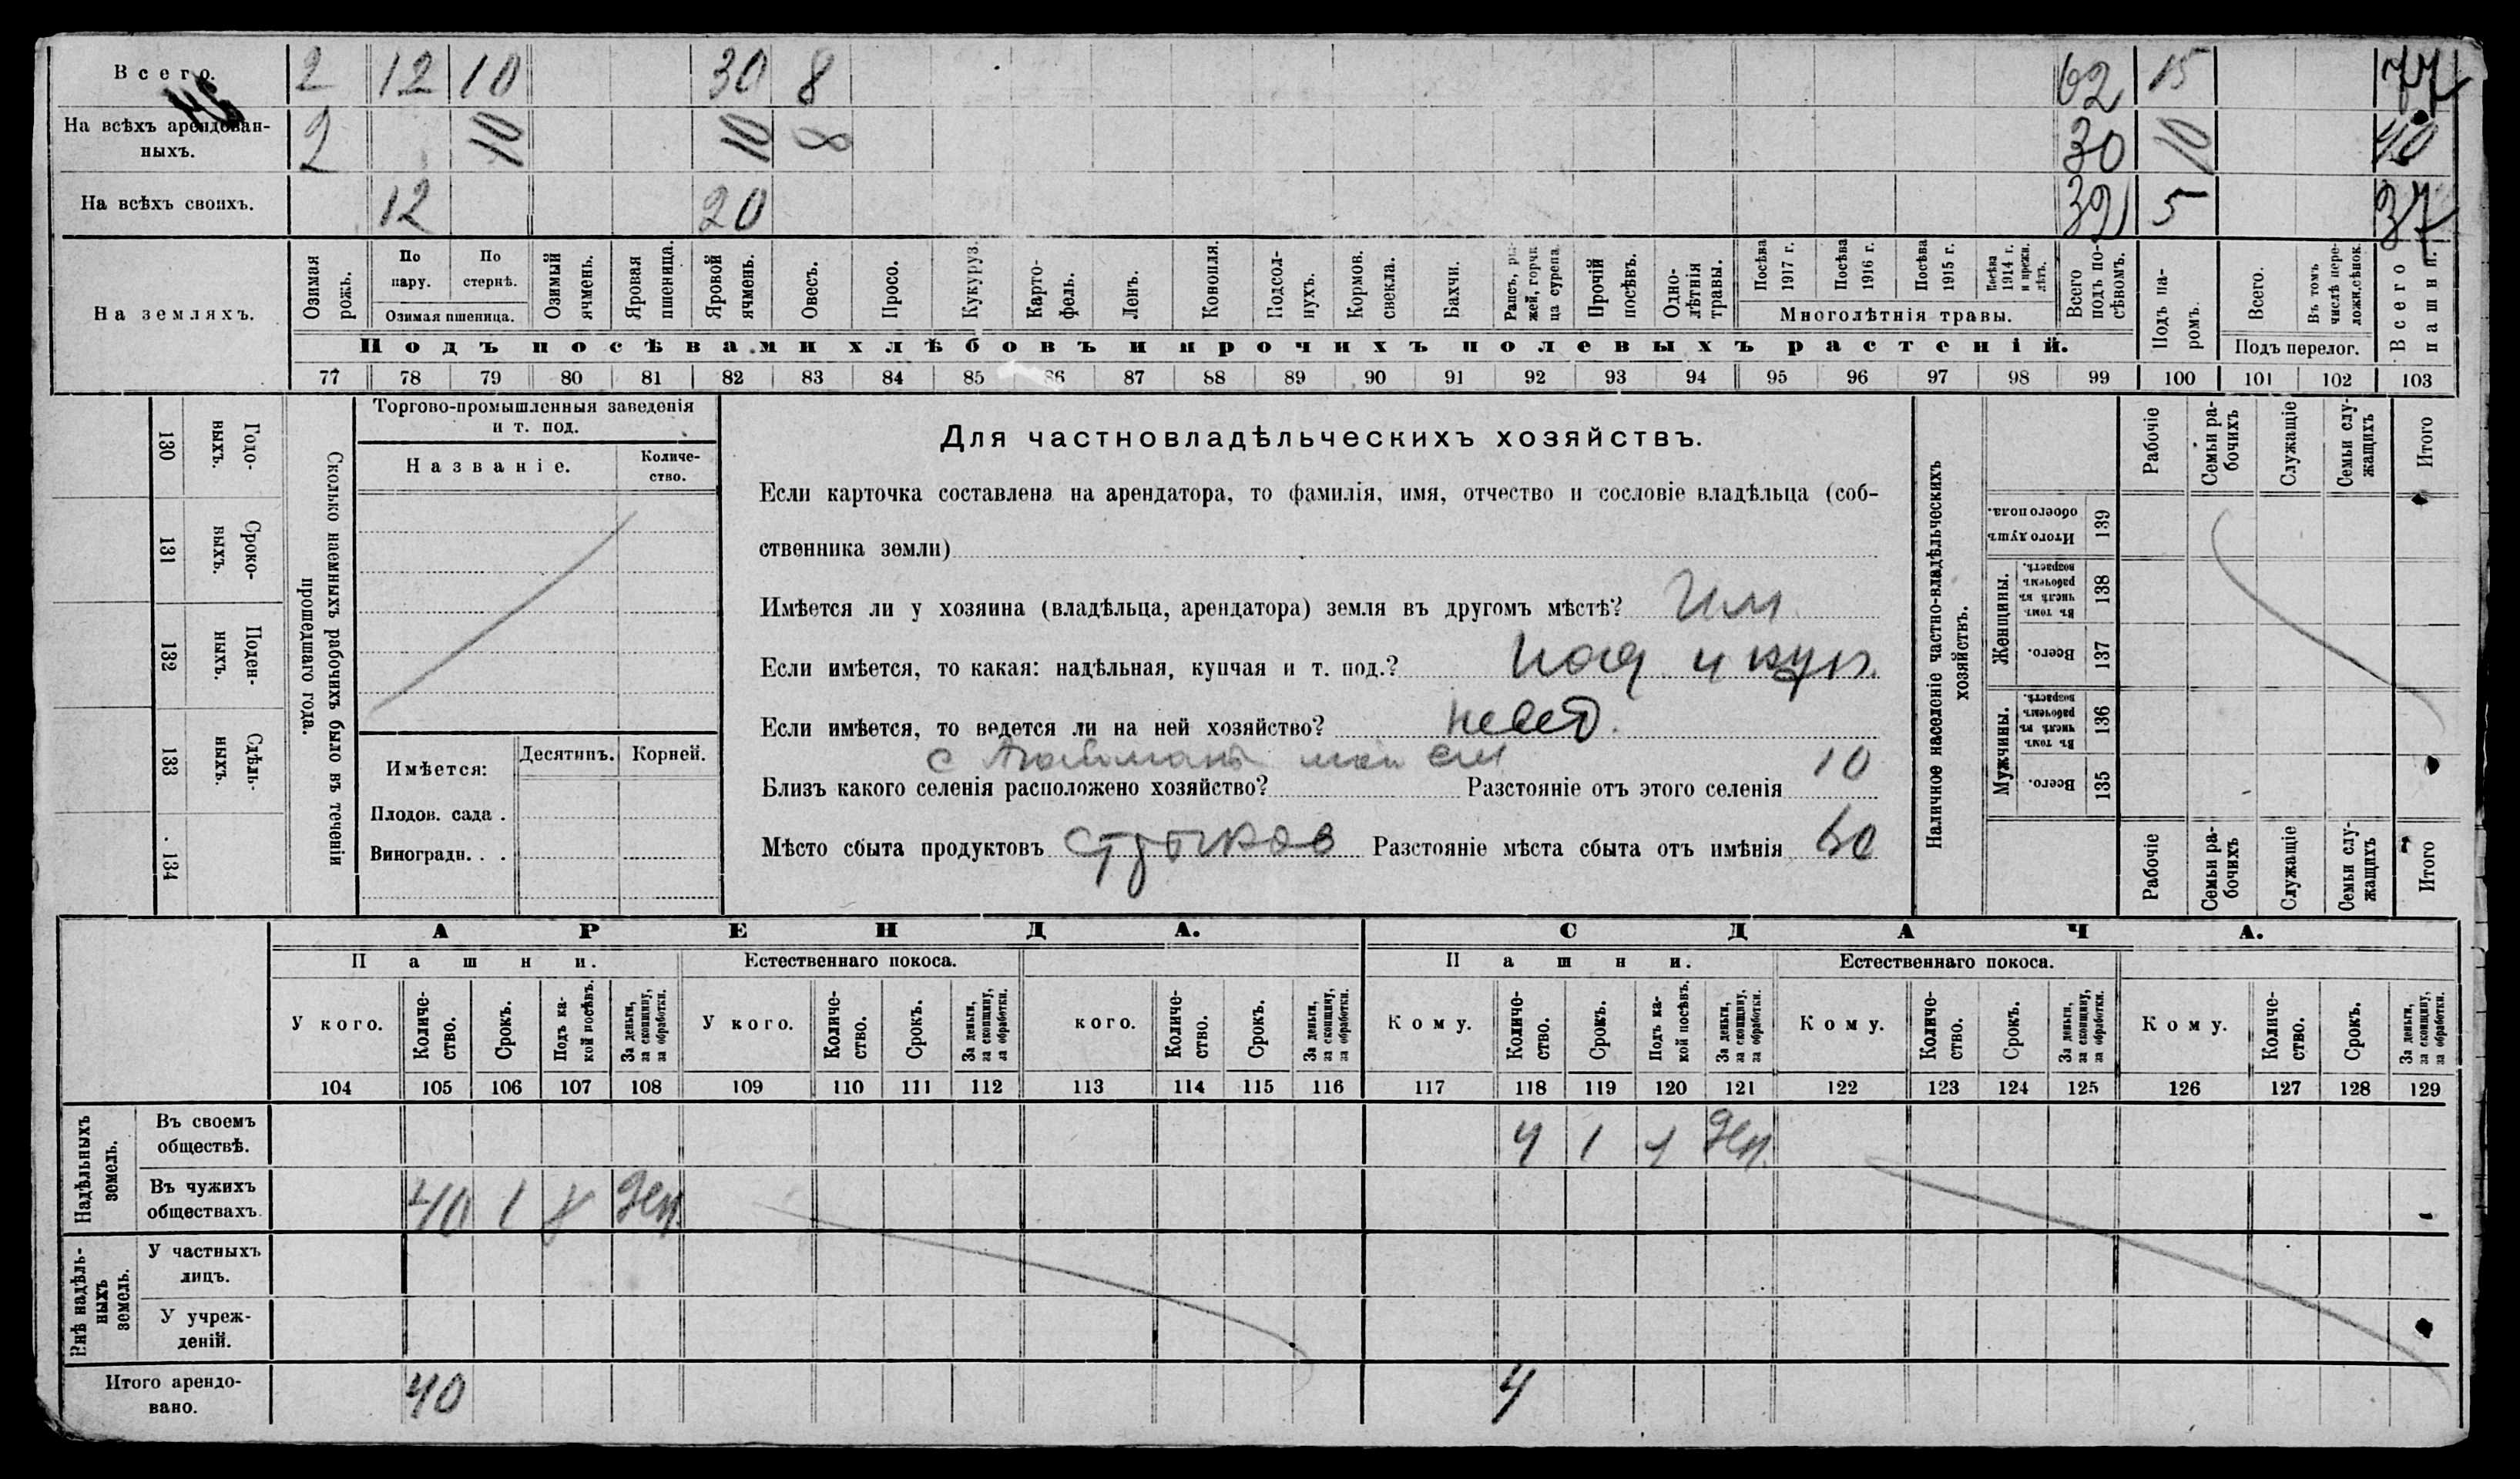 Всего. 2 12 10 30 8 62 15 77
На всѣхъ арендован-
ныхъ. 2 10 10 8 30 10 40
На всѣхъ своихъ. 12 20 32 5 37
На земляхъ.
Озимая рожь.
По пару.
По стернѣ.
Озимая пшеница.
Озимый ячмень.
Яровая пшеница.
Яровой ячмень.
Овесъ.
Просо.
Кукуруз.
Карто-
фель.
Ленъ.
Конопля.
Подсол-
нухъ.
Кормов.
свекла.
Бахчи.
Рапсъ, ры-
жей, горчи
ца сурепа
Прочій
посѣвъ.
Одно-
лѣтнія
травы.
Посѣва
1917 г.
Посѣва
1916 г.
Посѣва
1915 г.
Посѣва
1914 г.
и прежн.
лѣтъ.
Многолѣтнія травы.
Всего
подъ по-
сѣвомъ.
Подъ па-
ромъ.
Всего.
Въ томъ
числѣ пере-
ложн.сѣнок.
Подъ перелог.
Всего
пашни.
Подъ посѣвами хлѣбовъ и прочихъ полевыхъ растеній.
77 78 79 80 81 82 83 84 85 86 87 88 89 90 91 92 93 94 95 96 97 98 99 100 101 102 103
130 Годо-
ныхъ.
131 Сроко-
ныхъ.
132 Поден-
ныхъ.
133 Сдѣль-
ныхъ.
134
Сколько наемныхъ рабочихъ было въ теченіи
прошедшаго года.
Торгово-промышленныя заведенія
и т. под.
Названіе.
Количе-
ство.
Имѣется:
Десятинъ.
Корней.
Плодов. сада .
Виноградн. . .
Для частновладѣльческихъ хозяйствъ.
Если карточка составлена на арендатора, то фамилія, имя, отчество и сословіе владѣльца (соб-
ственника земли)
Имѣется ли у хозяина (владѣльца, арендатора) земля въ другомъ мѣстѣ? Им
Если имѣется, то какая: надѣльная, купчая и т. под.? над и куп.
Если имѣется, то ведется ли на ней хозяйство?
Близъ какого селенія расположено хозяйство? Разстояніе отъ этого селенія 10
Мѣсто сбыта продуктовъ Разстояніе мѣста сбыта отъ имѣнія
Наличное населеніе частно-владѣльческихъ
хозяйствъ.
Рабочіе
Семьи ра-
бочихъ
Служащіе
Семьи слу-
жащихъ
Итого
Итого душъ
обоего пола.
139
Женщины.
Въ томъ
числѣ въ
рабочемъ
возрастѣ.
138
Всего.
137
Мужчины.
Въ томъ
числѣ въ
рабочемъ
возрастѣ.
136
Всего.
135
Рабочіе
Семьи ра-
бочихъ
Служащіе
Семьи слу-
жащихъ
Итого
АРЕНДА. СДАЧА.
Пашни. Естественнаго покоса. Пашни. Естественнаго покоса.
У кого.
Количе-
ство.
Срокъ.
Подъ ка-
кой посѣвъ.
За деньги,
за скопщину,
за обработки.
У кого.
Количе-
ство.
Срокъ.
За деньги,
за скопщину,
за обработки.
кого.
Количе-
ство.
Срокъ.
За деньги,
за скопщину,
за обработки.
Кому.
Количе-
ство.
Срокъ.
Подъ ка-
кой посѣвъ.
За деньги,
за скопщину,
за обработки.
Кому.
Количе-
ство.
Срокъ.
За деньги,
за скопщину,
за обработки.
Кому.
Количе-
ство.
Срокъ.
За деньги,
за скопщину,
за обработки.
104 105 106 107 108 109 110 111 112 113 114 115 116 117 118 119 120 121 122 123 124 125 126 127 128 129
Надѣльныхъ
земель.
Въ своемъ
обществѣ. 4 1
Въ чужихъ
обществахъ. 40 1
Внѣ надѣль-
ныхъ
земель.
У частныхъ
лицъ.
У учреж-
деній.
Итого арендо-
вано. 40 4